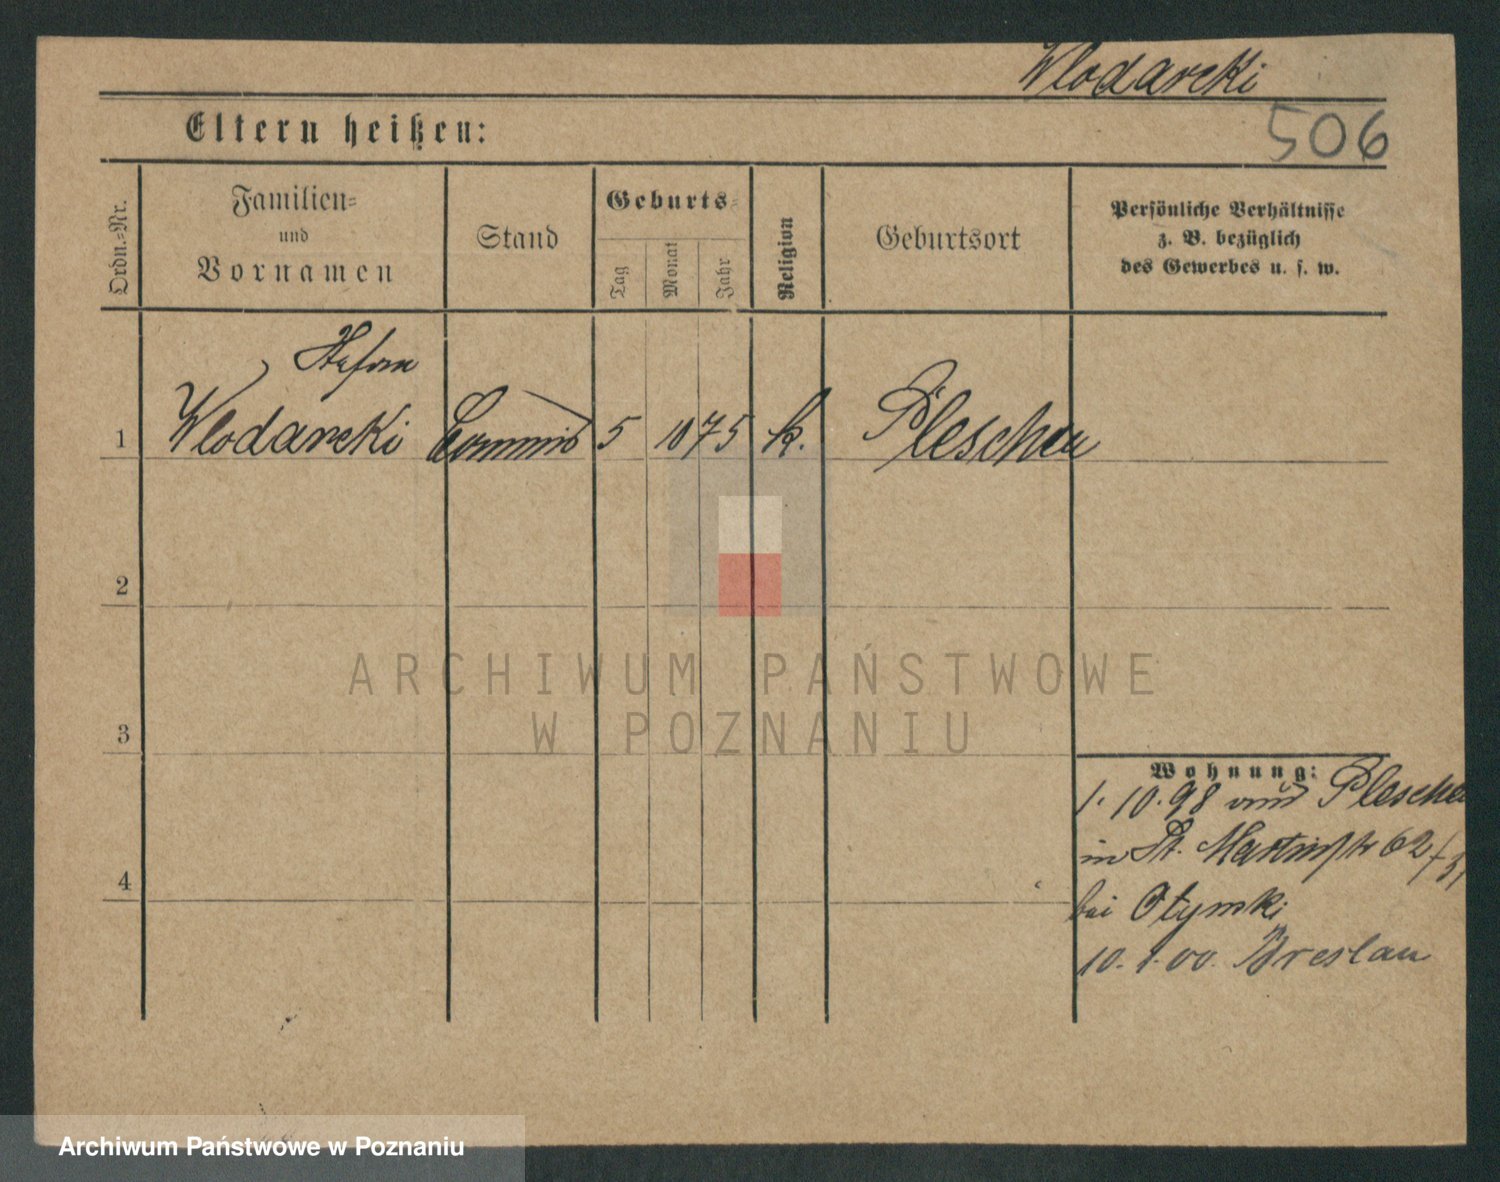 Wlodarcki
Eltern heißen:
506
Ordn.=Nr.
Familien=
und
Vornamen
Stand
Geburts=
Tag
Monat
Jahr
Religion
Geburtsort
Persönliche Verhältnisse
z. B. bezüglich
des Gewerbes u. s. w.
Stefan
1 Wlodarcki Commis 5 10 75 k. Pleschen
2
ARCHIWUM PAŃSTWOWE
W POZNANIU
3
Wohnung:
1. 10. 98 Pleschen
in St. Martinstr 62
4
bei Otymski
10. 1. 00. Breslau
Archiwum Państwowe w Poznaniu